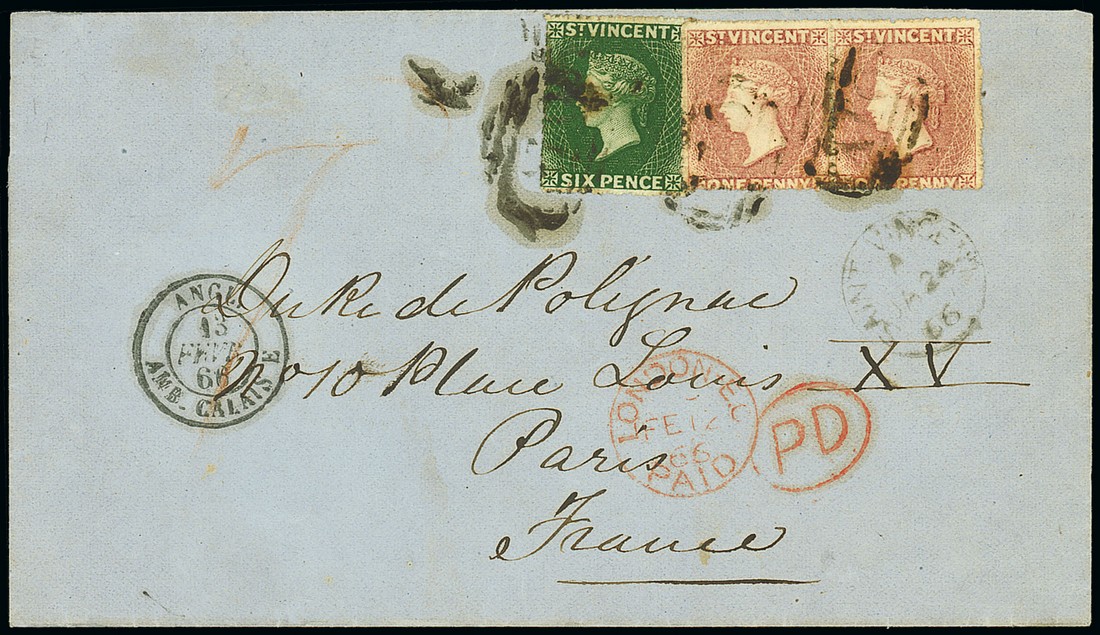 ST VINCENT
SIX PENCE
ST VINCENT
ONE PENNY
ST VINCENT
ONE PENNY
7
SAINT VINCENT
A
JA 24
66
Duke de Polignac
No 10 Place Louis XV
Paris
France
ANGL.
13
FEVR
66
AMB. CALAIS E
LONDON E.C
FE 12
66
PAID
PD